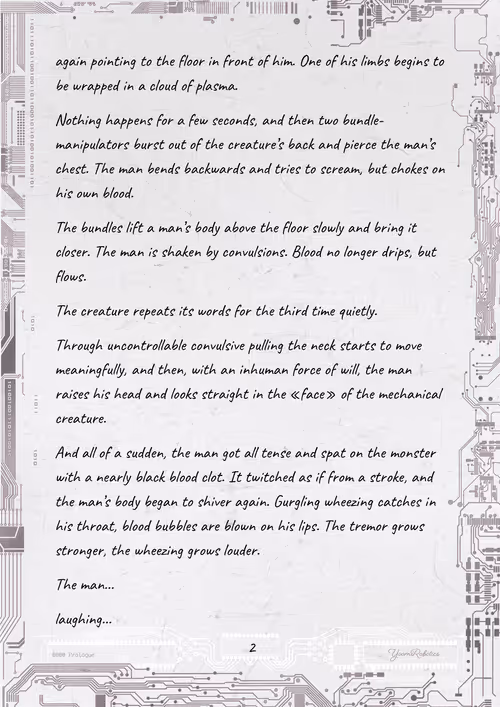 again pointing to the floor in front of him. One of his limbs begins to
be wrapped in a cloud of plasma.
Nothing happens for a few seconds, and then two bundle-
manipulators burst out of the creature's back and pierce the man's
chest. The man bends backwards and tries to scream, but chokes on
his own blood.
The bundles lift a man's body above the floor slowly and bring it
closer. The man is shaken by convulsions. Blood no longer drips, but
flows.
The creature repeats its words for the third time quietly.
Through uncontrollable convulsive pulling the neck starts to move
meaningfully, and then, with an inhuman force of will, the man
raises his head and looks straight in the «face» of the mechanical
creature.
And all of a sudden, the man got all tense and spat on the monster
with a nearly black blood clot. It twitched as if from a stroke, and
the man's body began to shiver again. Gurgling wheezing catches in
his throat, blood bubbles are blown on his lips. The tremor grows
stronger, the wheezing grows louder.
The man...
laughing...
2
0000 Prologue